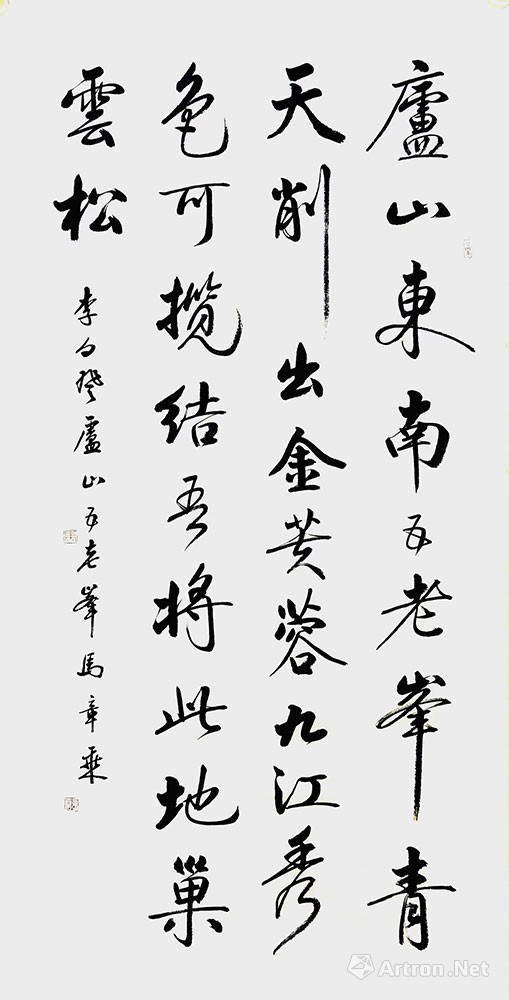 廬山東南五老峯青
天削出金芙蓉九江秀
色可攬結吾將此地巢
雲松
李白登廬山五老峯馬章乘
Artron.Net